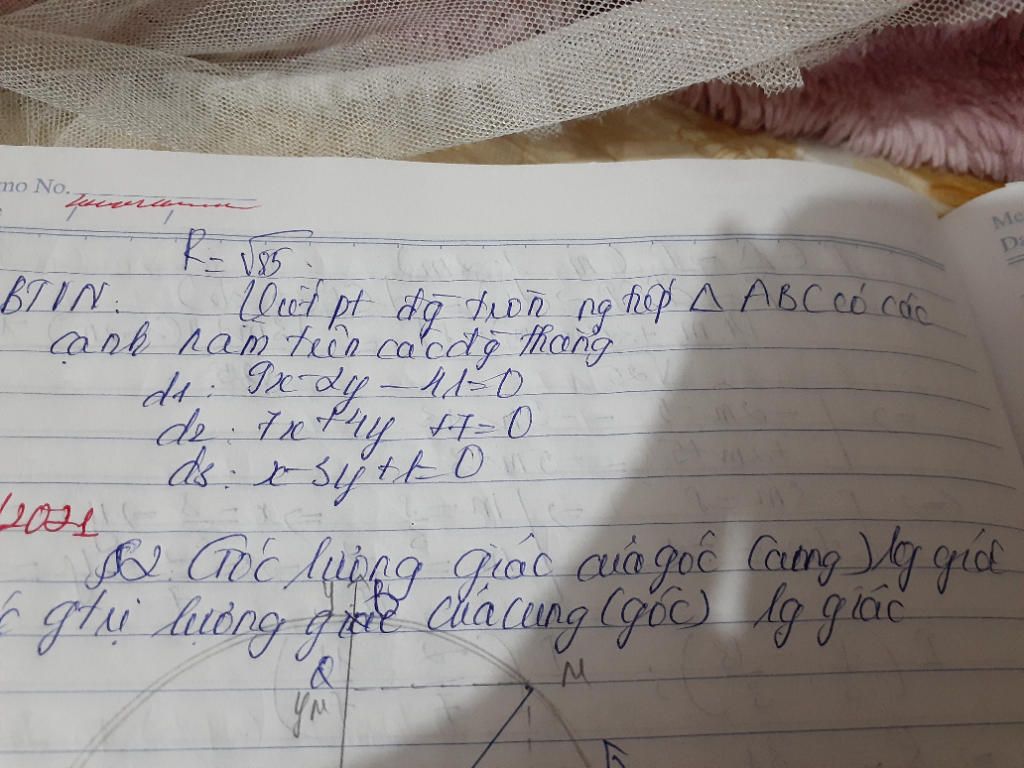 mo No.
R = √85.
BTVN: Viết pt đg tròn ng tiếp Δ ABC có các
cạnh nằm trên các đg thẳng
d1: 9x - 2y - 41 = 0
d2: 7x + 4y + 7 = 0
d3: x - 3y + 1 = 0
/2021
§2 Góc lượng giác của góc (cung) lg giác
gtrị lượng giác của cung (góc) lg giác
y B
Q M
yM
Me
Da